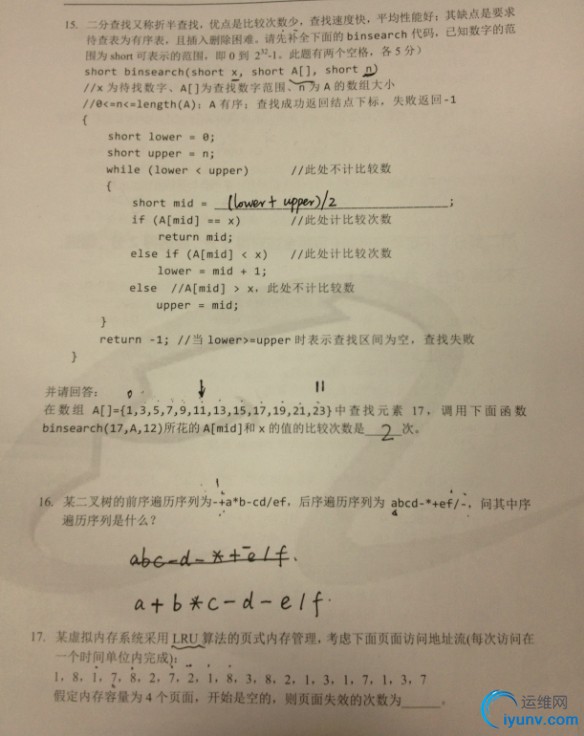 15. 二分查找又称折半查找，优点是比较次数少，查找速度快，平均性能好；其缺点是要求
待查表为有序表，且插入删除困难。请先补全下面的 binsearch 代码，已知数字的范
围为 short 可表示的范围，即 0 到 2³²-1。此题有两个空格，各 5 分）
short binsearch(short x, short A[], short n)
//x 为待找数字、A[]为查找数字范围、n 为 A 的数组大小
//0<=n<=length(A)；A 有序；查找成功返回结点下标，失败返回-1
{
short lower = 0;
short upper = n;
while (lower < upper) //此处不计比较数
{
short mid = (lower+upper)/2 ;
if (A[mid] == x) //此处计比较次数
return mid;
else if (A[mid] < x) //此处计比较次数
lower = mid + 1;
else //A[mid] > x，此处不计比较数
upper = mid;
}
return -1; //当 lower>=upper 时表示查找区间为空，查找失败
}
并请回答： 0 11
在数组 A[]={1,3,5,7,9,11,13,15,17,19,21,23}中查找元素 17，调用下面函数
binsearch(17,A,12)所花的 A[mid]和 x 的值的比较次数是 2 次。
16. 某二叉树的前序遍历序列为-+a*b-cd/ef，后序遍历序列为 abcd-*+ef/-，问其中序
遍历序列是什么？
abc-d-*+-e/f.
a+b*c-d-e/f.
17. 某虚拟内存系统采用 LRU 算法的页式内存管理，考虑下面页面访问地址流(每次访问在
一个时间单位内完成)：
1，8，1，7，8，2，7，2，1，8，3，8，2，1，3，1，7，1，3，7
假定内存容量为 4 个页面，开始是空的，则页面失效的次数为______。
运维网
iyunv.com